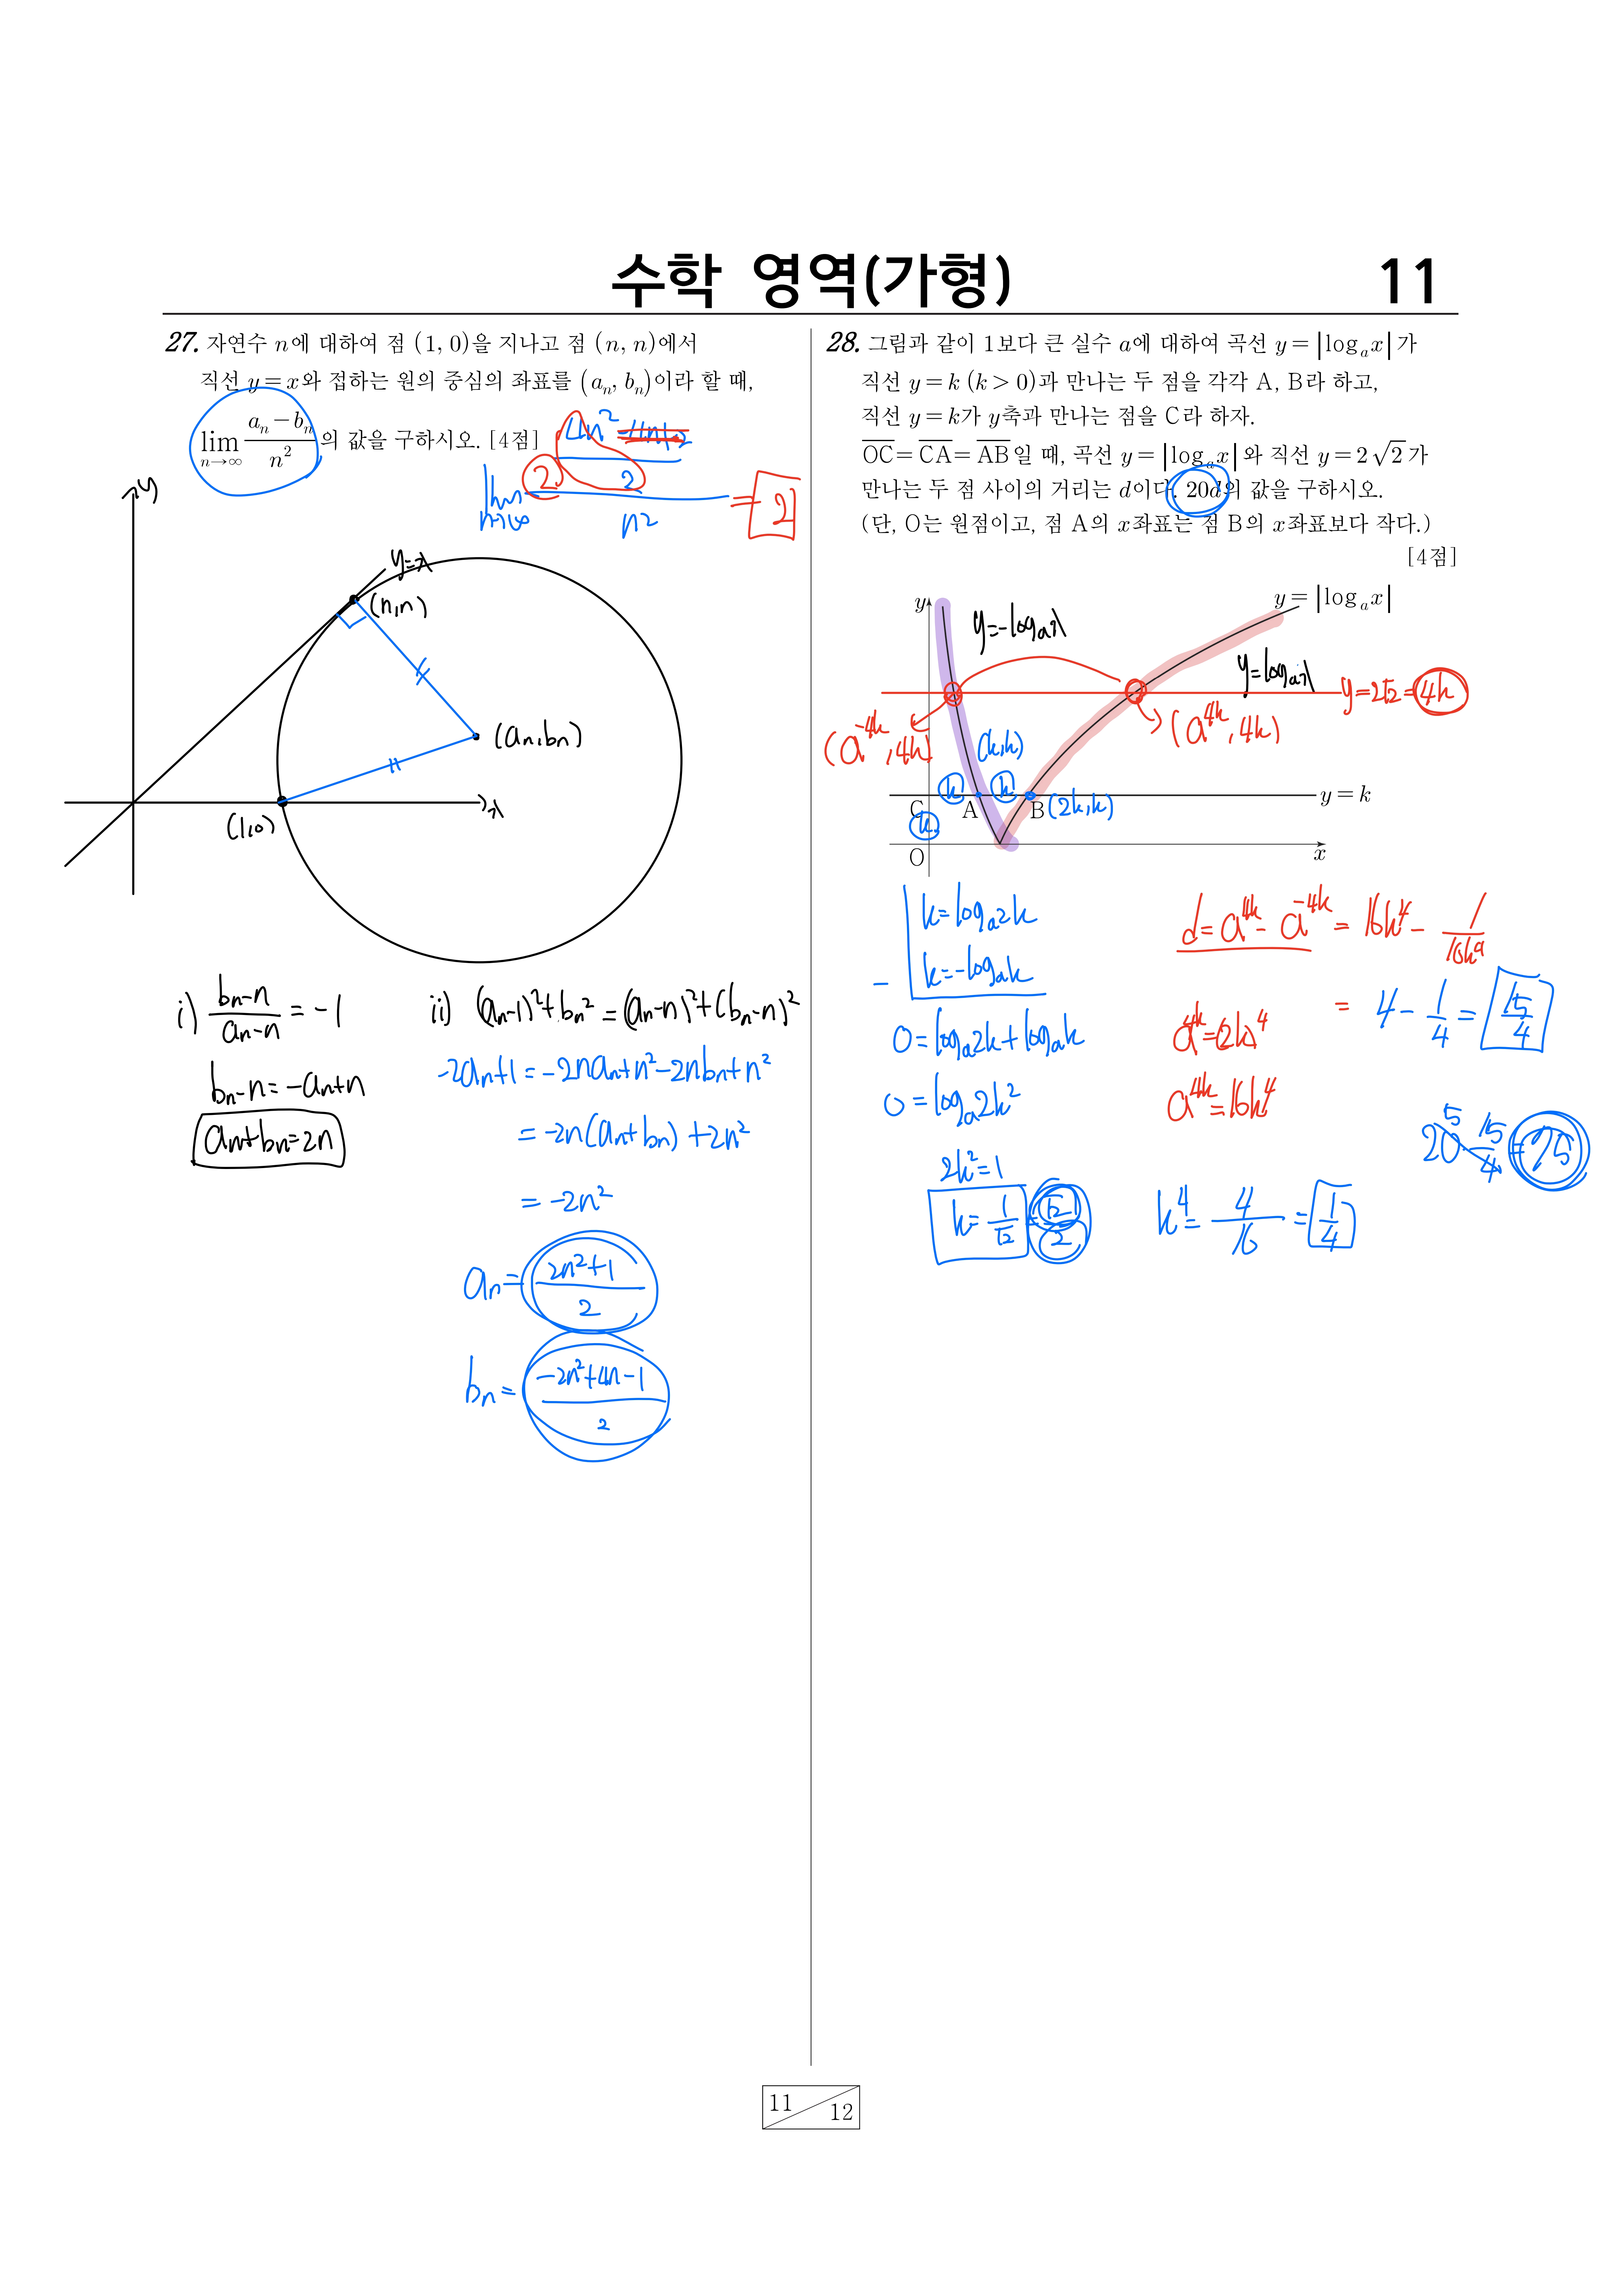 수학 영역(가형)
11
27. 자연수 n에 대하여 점 (1, 0)을 지나고 점 (n, n)에서
직선 y=x와 접하는 원의 중심의 좌표를 (aₙ, bₙ)이라 할 때,
lim n→∞ (aₙ-bₙ)/n² 의 값을 구하시오. [4점]
lim n→∞ ((4n²-4n+2)/2)/n² = 2
2
y
y=x
(n,n)
(an,bn)
(1,0)
x
i) (bn-n)/(an-n) = -1
bn-n=-an+n
an+bn=2n
ii) (an-1)²+bn²=(an-n)²+(bn-n)²
-2an+1=-2nan+n²-2nbn+n²
=-2n(an+bn)+2n²
=-2n²
an=(2n²+1)/2
bn=(-2n²+4n-1)/2
28. 그림과 같이 1보다 큰 실수 a에 대하여 곡선 y=|logₐx|가
직선 y=k (k>0)과 만나는 두 점을 각각 A, B라 하고,
직선 y=k가 y축과 만나는 점을 C라 하자.
OC=CA=AB일 때, 곡선 y=|logₐx|와 직선 y=2√2가
만나는 두 점 사이의 거리는 d이다. 20d의 값을 구하시오.
(단, O는 원점이고, 점 A의 x좌표는 점 B의 x좌표보다 작다.)
[4점]
y
y=|logₐx|
y=-logₐx
y=logₐx
y=2√2=4k
(a^-4k, 4k)
(a^4k, 4k)
(k,k)
k
k
C
A
B
(2k,k)
y=k
k
O
x
k=logₐ2k
- k=-logₐk
0=logₐ2k+logₐk
0=logₐ2k²
2k²=1
k=1/√2=√2/2
d=a^4k-a^-4k=16k⁴-1/16k⁴
=4-1/4=15/4
a^4k=(2k)⁴
a^4k=16k⁴
k⁴=4/16=1/4
5
20·15/4=75
11
12